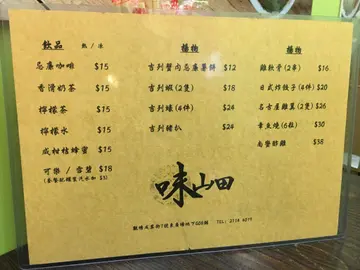 飲品 熱/凍
忌廉咖啡 $15
香滑奶茶 $15
檸檬茶 $15
檸檬水 $15
咸柑桔蜂蜜 $15
可樂/雪碧 $18
(套餐配罐裝汽水加 $3)
播物
吉列蟹肉忌廉薯餅 $12
吉列蝦(2隻) $18
吉列蠔(4件) $24
吉列豬扒 $24
播物
雞軟骨(2串) $16
日式炸餃子(4件) $20
名古屋雞翼(2隻) $26
章魚燒(6粒) $30
南蠻酥雞 $38
味山田
TEL: 2714 4079